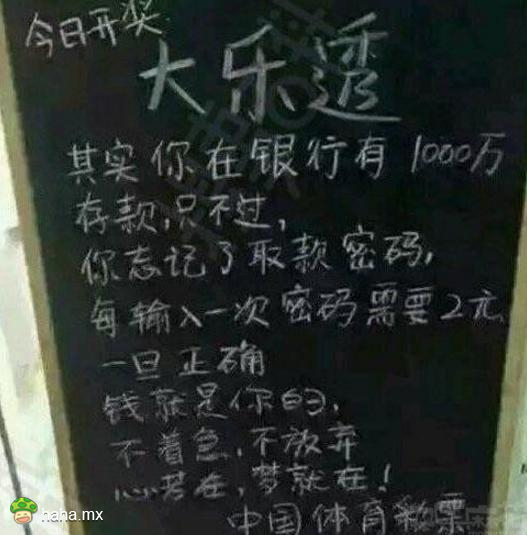 今日开奖
大乐透
其实你在银行有1000万
存款,只不过,
你忘记了取款密码,
每输入一次密码需要2元
一旦正确
钱就是你的,
不着急,不放弃
心若在,梦就在!
中国体育彩票
haha.mx